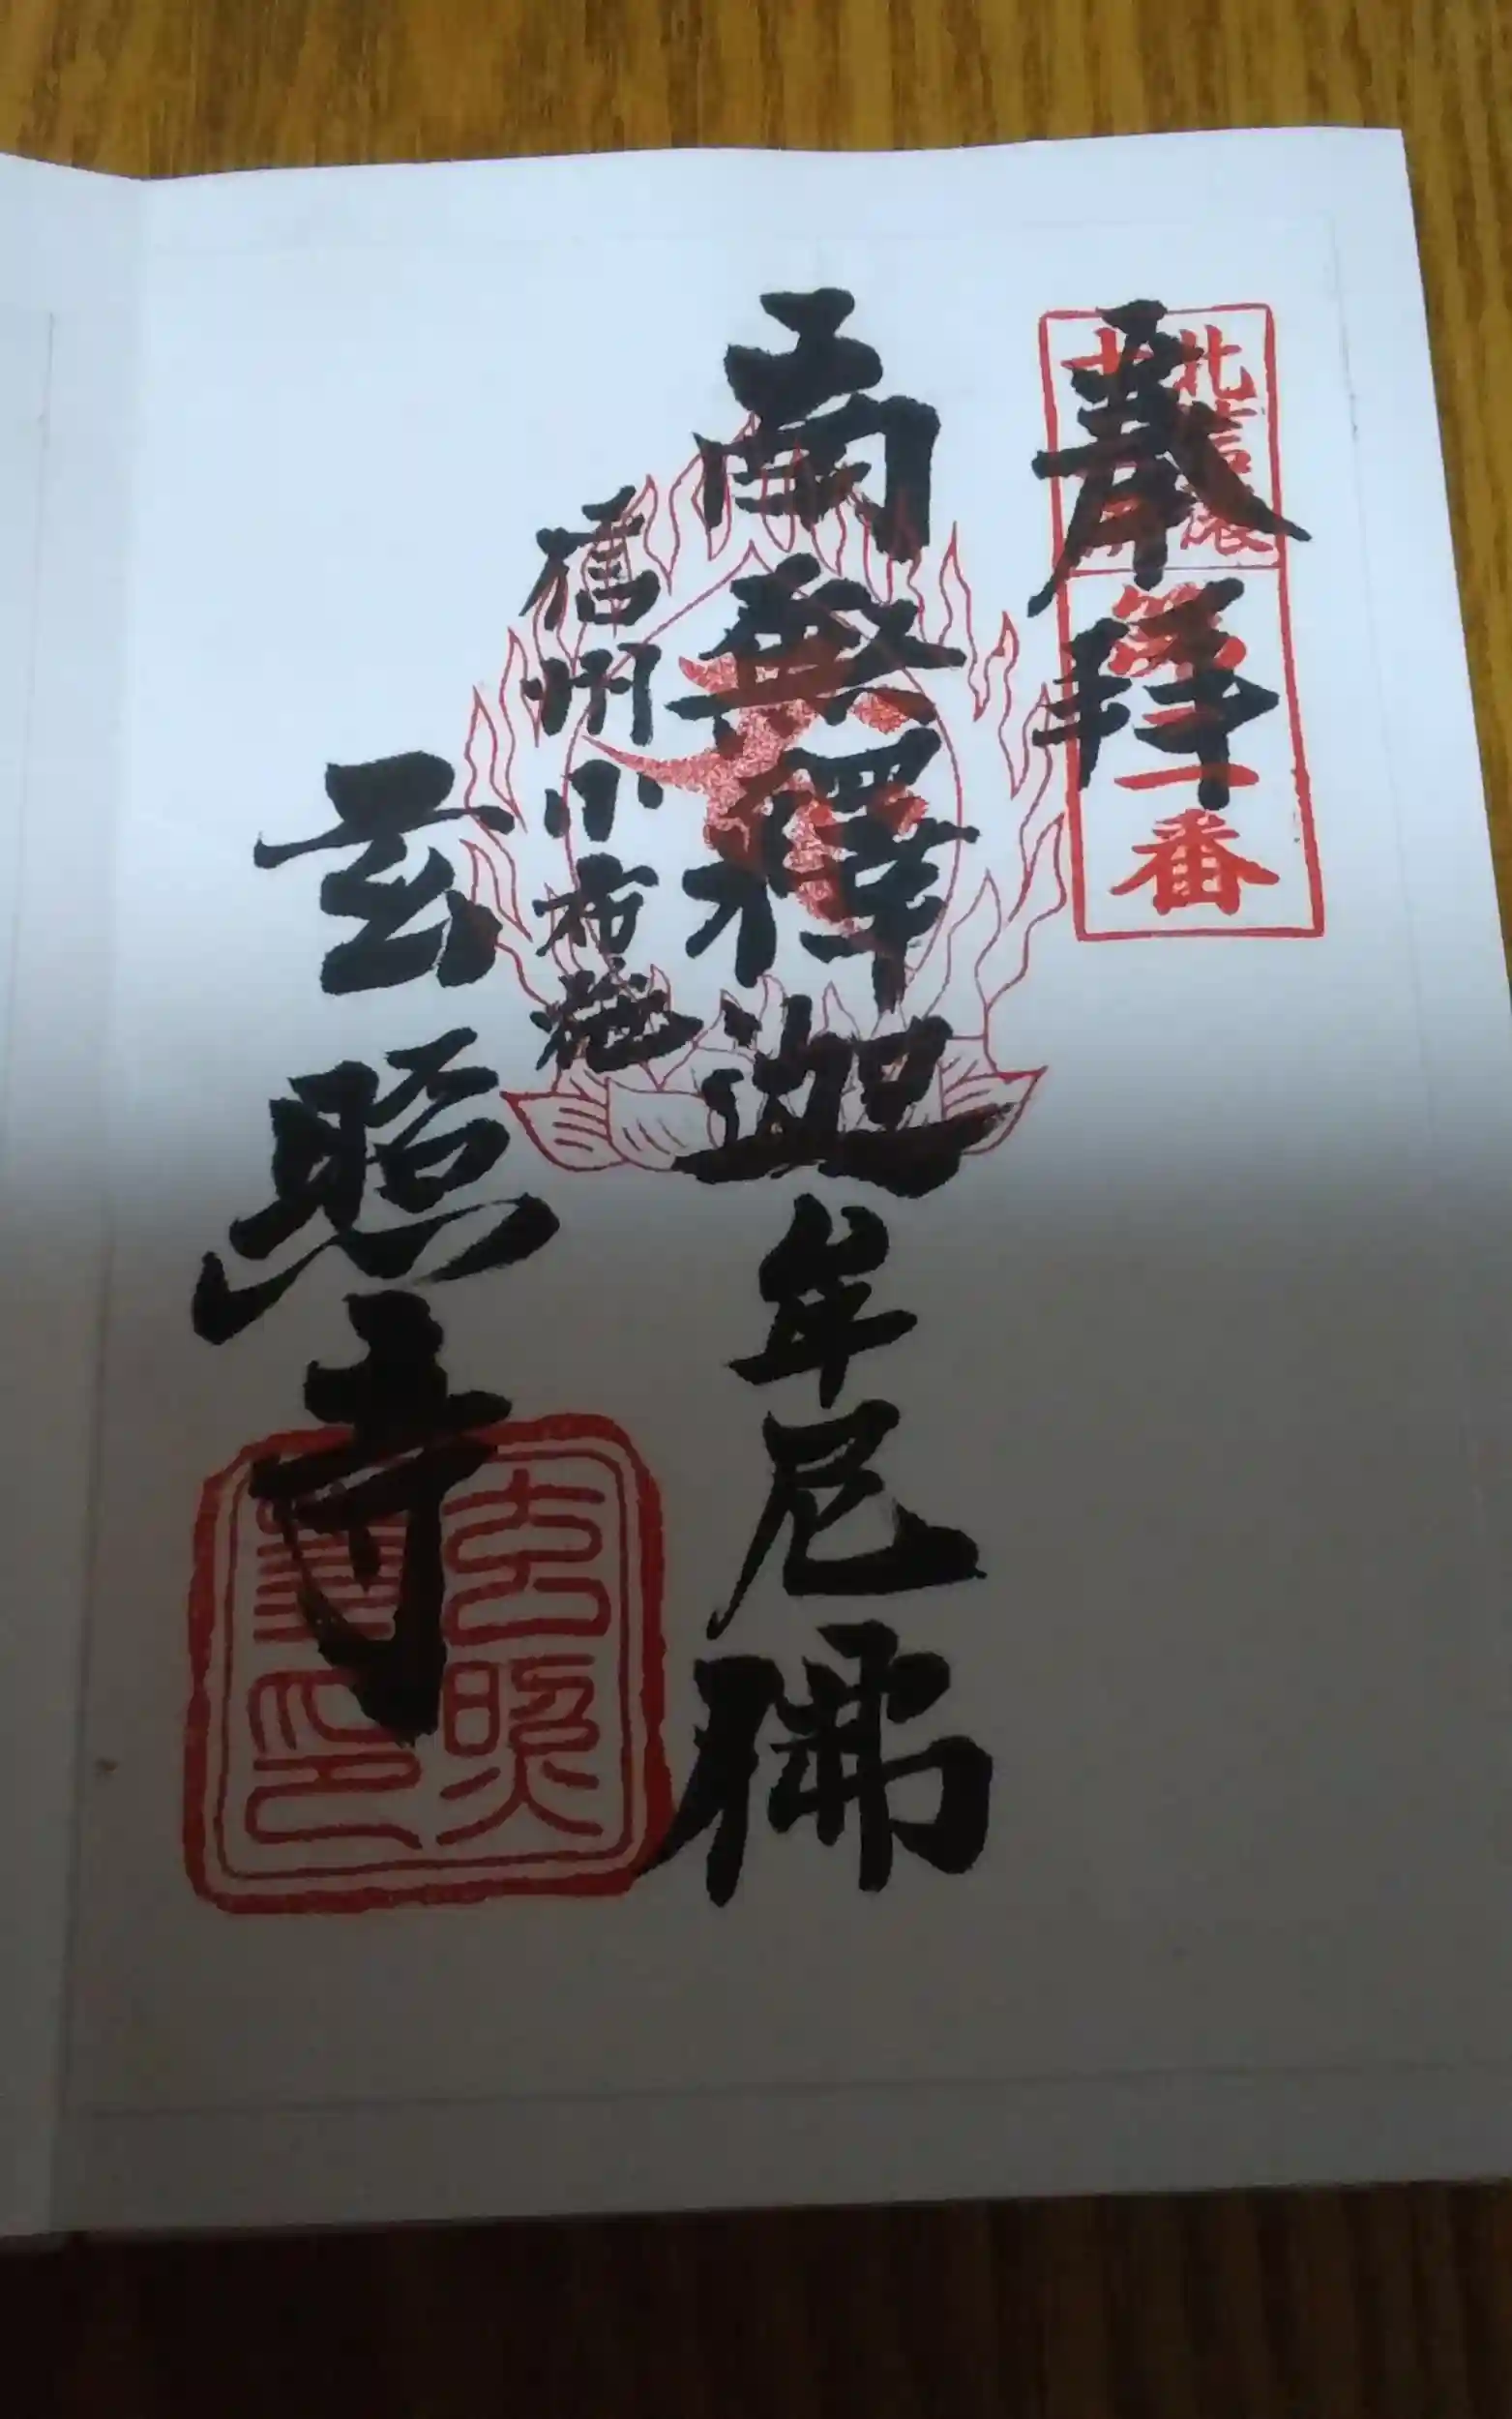 拝
北信濃
番
南無釋迦牟尼佛
信州小布施
玄照寺
玄照
印